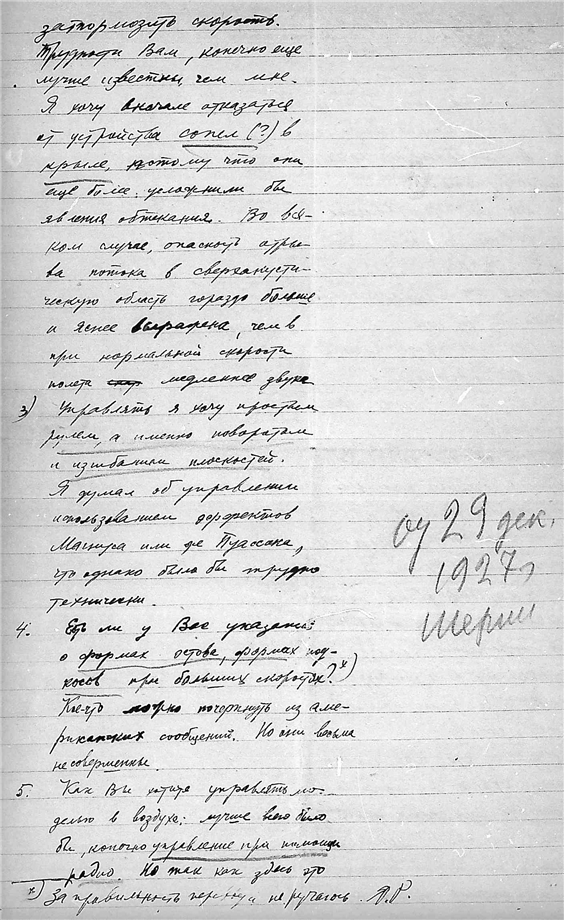 затормозить скорость.
Трудности Вам, конечно еще
лучше известны, чем мне.
Я хочу вначале отказаться
от устройства сопел (?) в
крыле, потому что они
еще более усложнили бы
явления обтекания. Во вся-
ком случае, опасность отры-
ва потока в сверхакусти-
ческую область гораздо больше
и яснее выражена, чем
при нормальной скорости
полета медленнее звука
3) Управлять я хочу простым
рулем, а именно поворотом
и изгибанием плоскостей.
Я думал об управлении
использованием эффектов
Магнуса или де Пуассона,
что однако было бы трудно
технически.
4. Есть ли у Вас указания
о формах остова, формах под-
косов при больших скоростях? x)
Кое-что можно почерпнуть из аме-
риканских сообщений. Но они весьма
несовершенны.
5. Как Вы хотите управлять мо-
делью в воздухе: лучше всего было
бы, конечно управление при помощи
радио. Но так как здесь это
x) За правильность перевода не ручаюсь. Я.Р.
от 29 дек.
1927 г